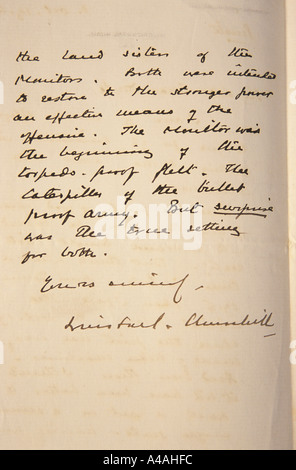 the land sisters of the
Monitors. Both were intended
to restore to the stronger power
an effective means of the
offensive. The Monitor was
the beginning of the
torpedo-proof fleet. The
Caterpillar of the bullet
proof army. But surprise
was the true setting
for both.
Yours
Winston S. Churchill
alamy
A4AHFC
www.alamy.com